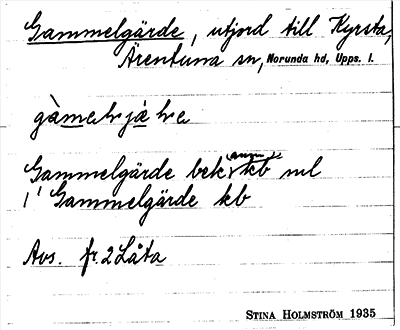 Gammelgärde, utjord till Kyrsta,
Ärentuna sn, Norunda hd, Upps. l.
Gammelgärde bek. kb ml
i Gammelgärde kb
Avs. fr. 2 Låta
STINA HOLMSTRÖM 1935